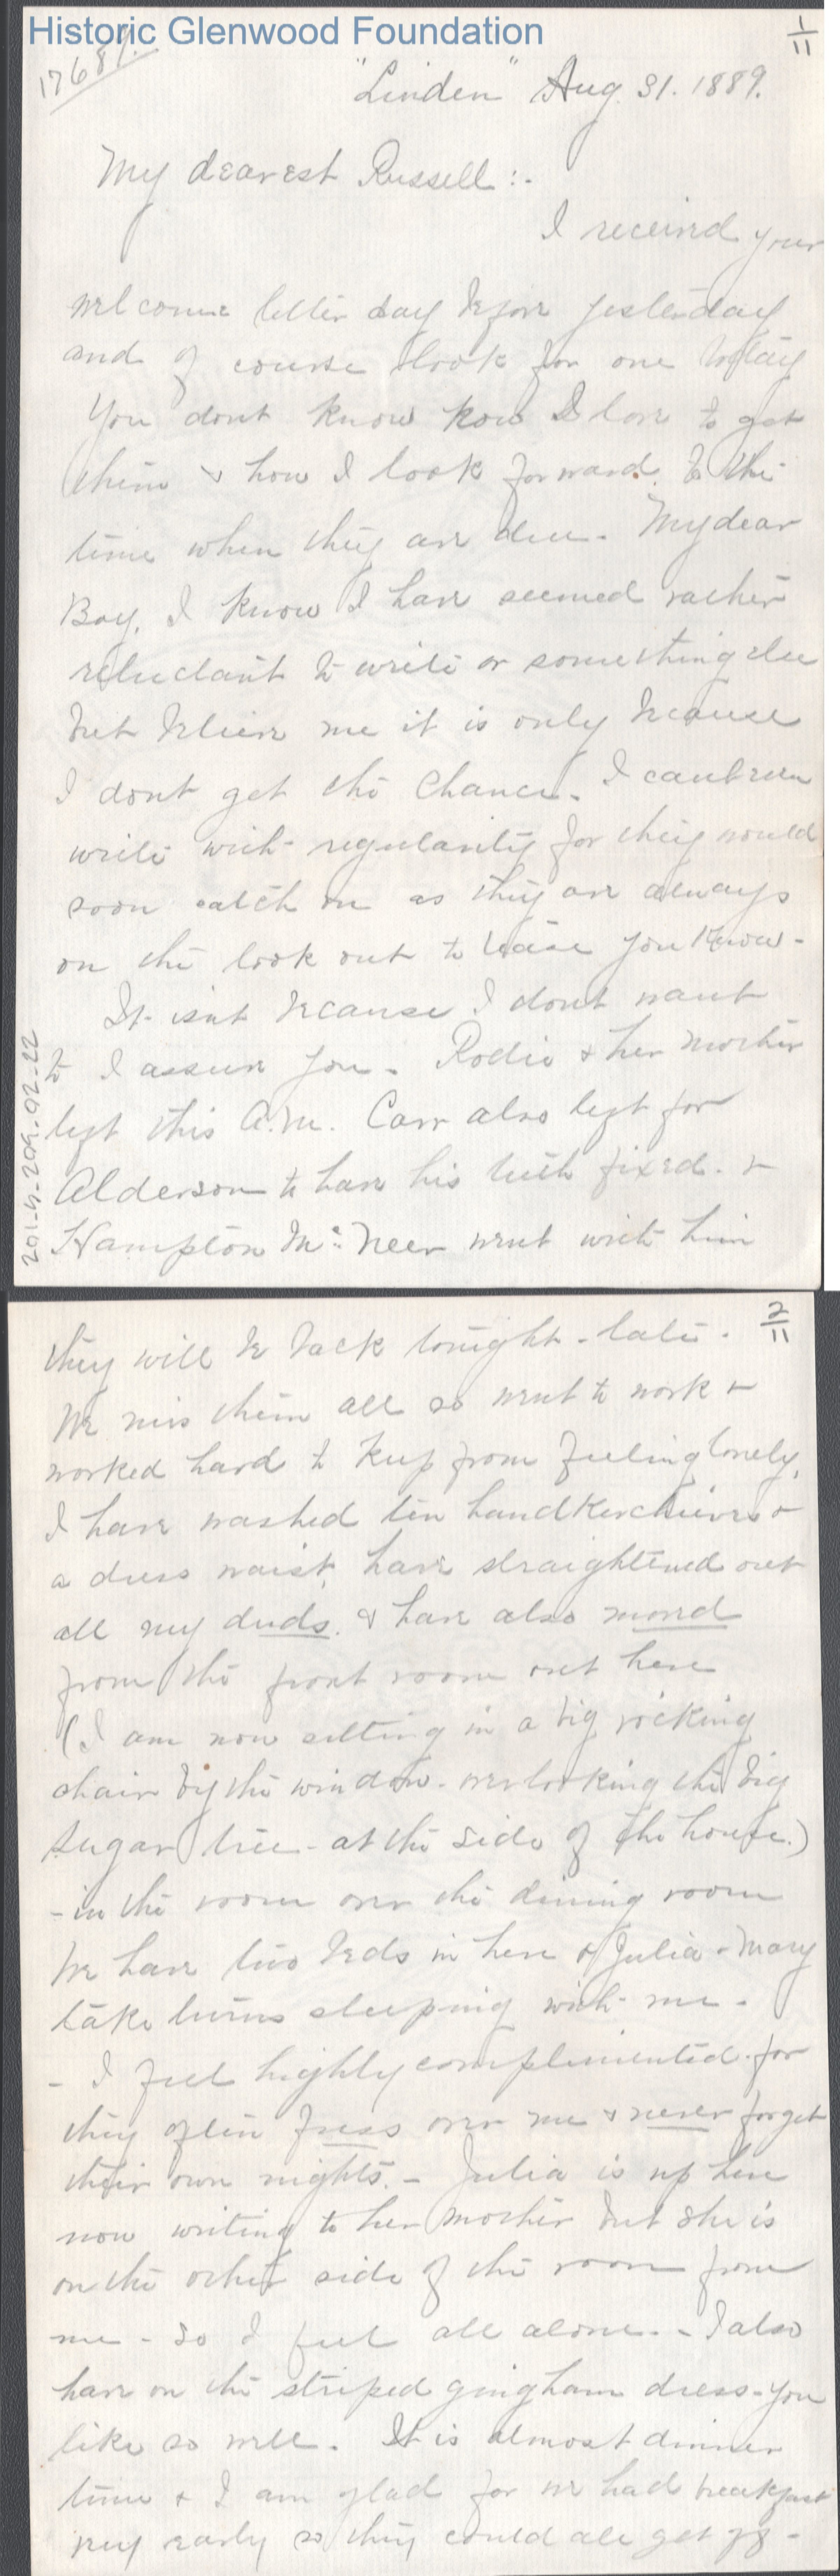 Historic Glenwood Foundation
1/11
17681.
"Linden" Aug. 31. 1889.
My dearest Russell:-
I received your
welcome letter day before yesterday
and of course look for one today
You dont know how I love to get
them & how I look forward to the
time when they are due. My dear
Boy, I know I have seemed rather
reluctant to write or something else
but believe me it is only because
I dont get the chance. I cant even
write with regularity for they would
soon catch on as they are always
on the look out to tease you know-
It isnt because I dont want
to I assure you. Rodie & her mother
left this A.M. Carr also left for
Alderson to have his teeth fixed. &
Hampton Mc. Neer went with him
201-4-209-02-22
2/11
they will be back tonight - late.
We miss them all so went to work &
worked hard to keep from feeling lonely,
I have washed ten handkerchieves &
a dress waist, have straightened out
all my duds. & have also moved
from the front room out here
(I am now sitting in a big rocking
chair by the window - overlooking the big
sugar tree - at the side of the house.)
- in the room over the dining room
We have two beds in here & Julia & Mary
take turns sleeping with me -
- I feel highly complimented for
they often fuss over me & never forget
their own nights. - Julia is up here
now writing to her mother but she is
on the other side of the room from
me - so I feel all alone. - I also
have on the striped gingham dress - you
like so well. It is almost dinner
time & I am glad for we had breakfast
very early so they could all get off -